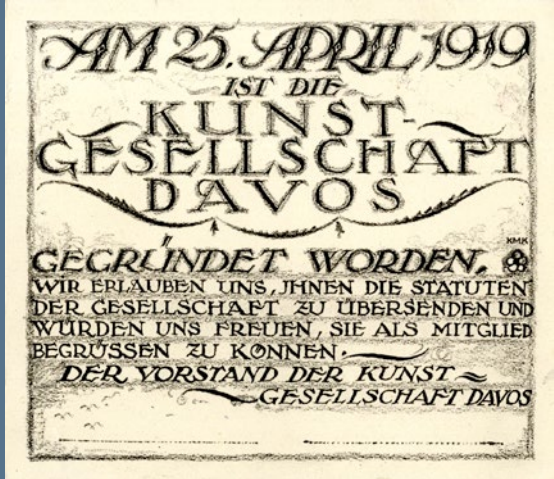 AM 25. APRIL 1919
IST DIE
KUNST-
GESELLSCHAFT
DAVOS
KMK
GEGRÜNDET WORDEN.
WIR ERLAUBEN UNS, JHNEN DIE STATUTEN
DER GESELLSCHAFT ZU ÜBERSENDEN UND
WÜRDEN UNS FREUEN, SIE ALS MITGLIED
BEGRÜSSEN ZU KÖNNEN.
DER VORSTAND DER KUNST=
GESELLSCHAFT DAVOS